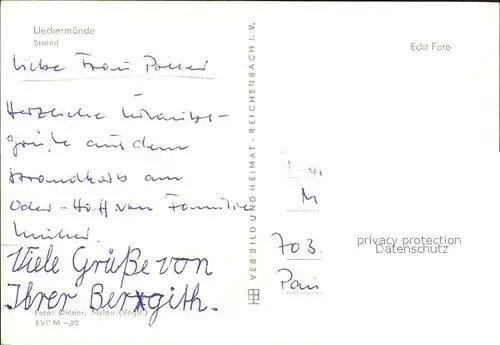 Ueckermünde
Strand
Liebe Frau Poller
Herzliche Urlaubs-
grüße aus dem
Strandkorb am
Oder-Haff von Familie
Viele Grüße von
Ihrer Bergith.
Foto: Diener, Mylau (Vogtl.)
EVP M -,20
VEB BILD UND HEIMAT · REICHENBACH I. V.
Echt Foto
M
703
privacy protection
Datenschutz